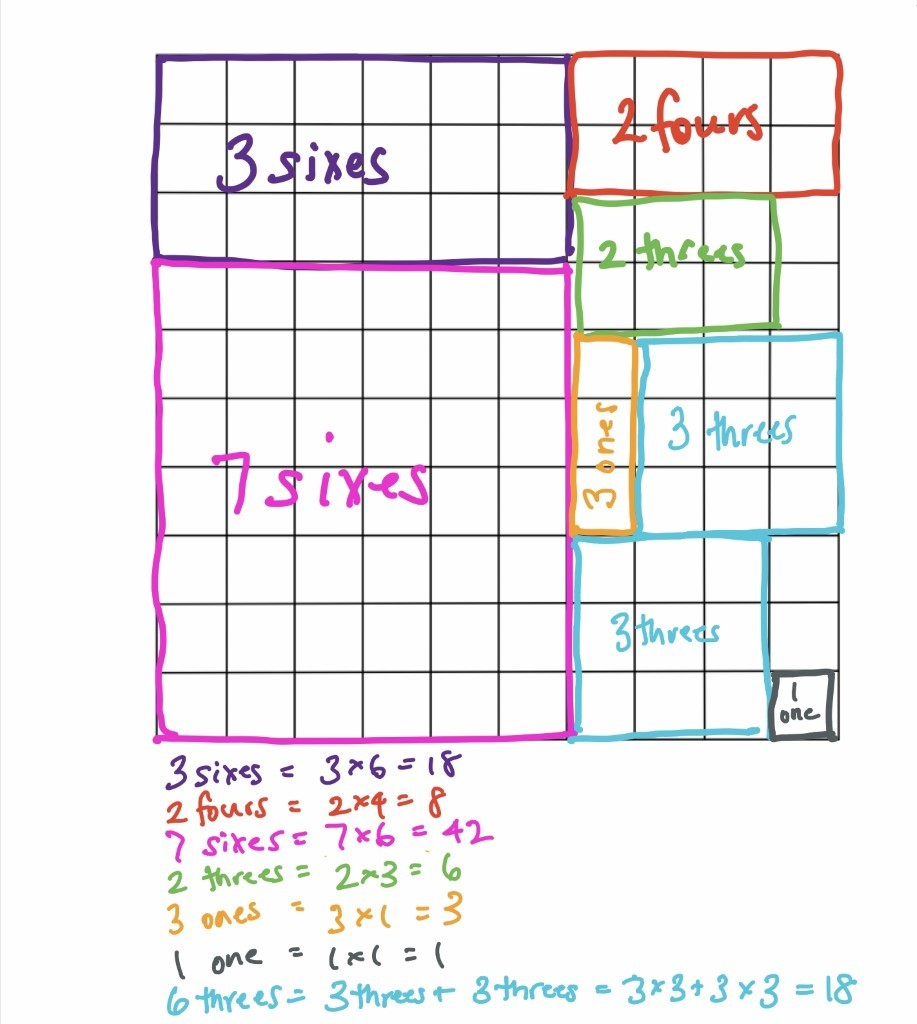 3 sixes
2 fours
2 threes
3 ones
3 threes
7 sixes
3 threes
1
one
3 sixes = 3×6 = 18
2 fours = 2×4 = 8
7 sixes = 7×6 = 42
2 threes = 2×3 = 6
3 ones = 3×1 = 3
1 one = 1×1 = 1
6 threes = 3 threes + 3 threes = 3×3+3×3 = 18